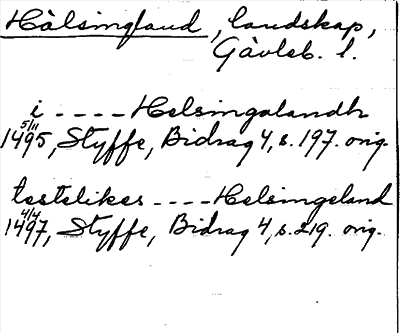 Hälsingland, landskap,
Gävleb. l.
i - - - - - Helsingalandh
5/11
1495, Styffe, Bidrag 4, s. 197. orig.
tesselikes - - - - Helsingeland
4/4
1497, Styffe, Bidrag 4, s. 219. orig.